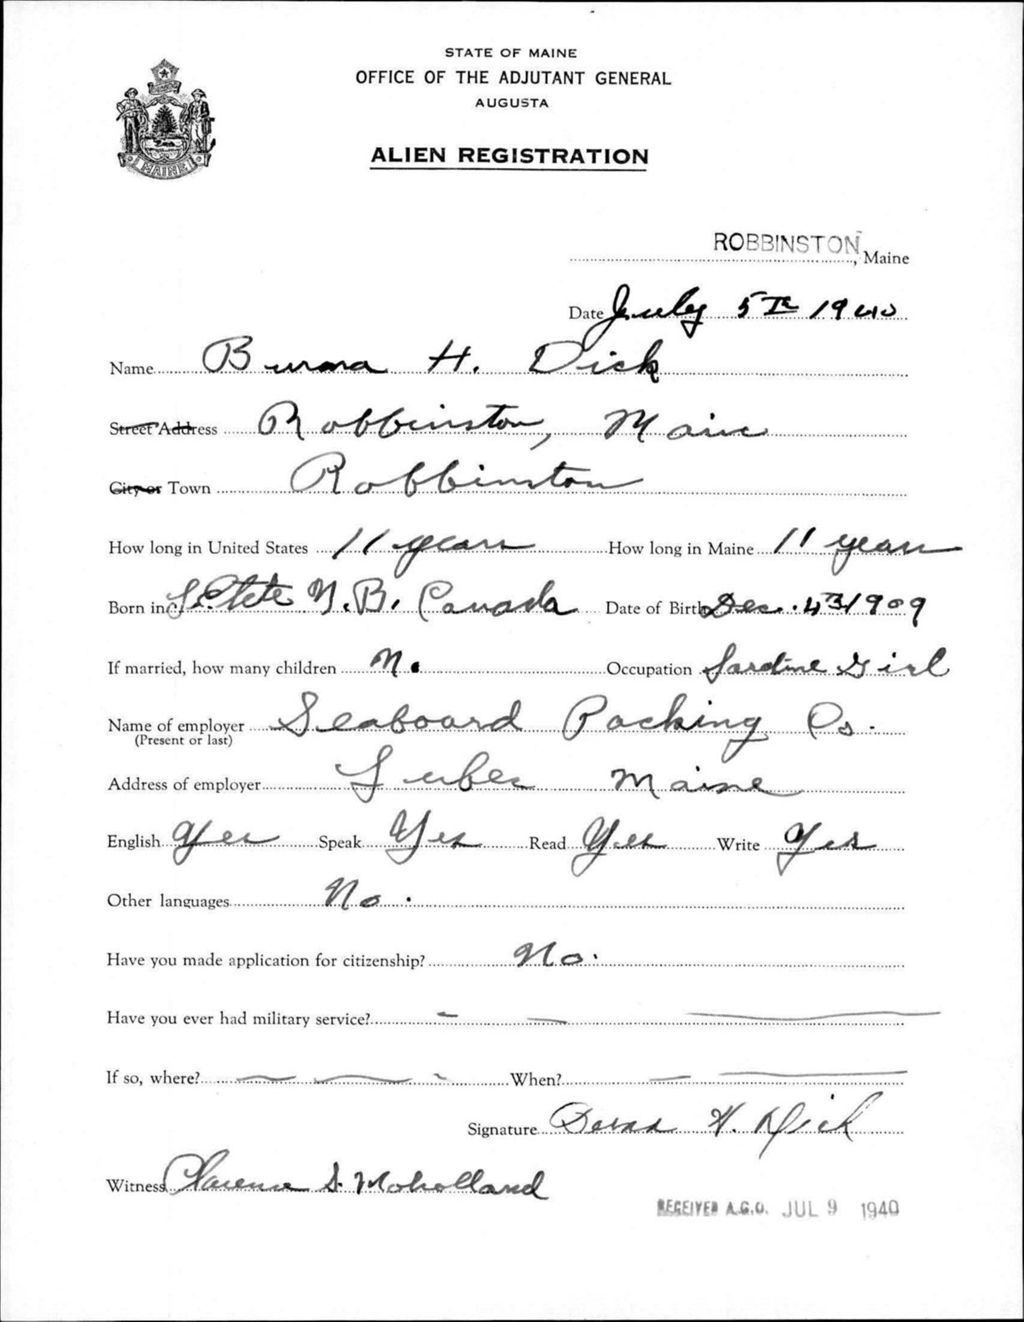 STATE OF MAINE
OFFICE OF THE ADJUTANT GENERAL
AUGUSTA
ALIEN REGISTRATION
MAINE
ROBBINSTON, Maine
Date July 5th 1940
Name Burma H. Dick
Street Address Robbinston, Maine
City or Town Robbinston
How long in United States 11 years How long in Maine 11 years
Born in Letete N.B. Canada Date of Birth Dec. 4th 1909
If married, how many children No Occupation Sardine Girl
Name of employer Seaboard Packing Co.
(Present or last)
Address of employer Lubec Maine
English Yes Speak Yes Read Yes Write Yes
Other languages No.
Have you made application for citizenship? No.
Have you ever had military service? — — —
If so, where? — — - When? — —
Signature H. Dick
Witness Clarence S. Moholland
RECEIVED A.G.O. JUL 9 1940